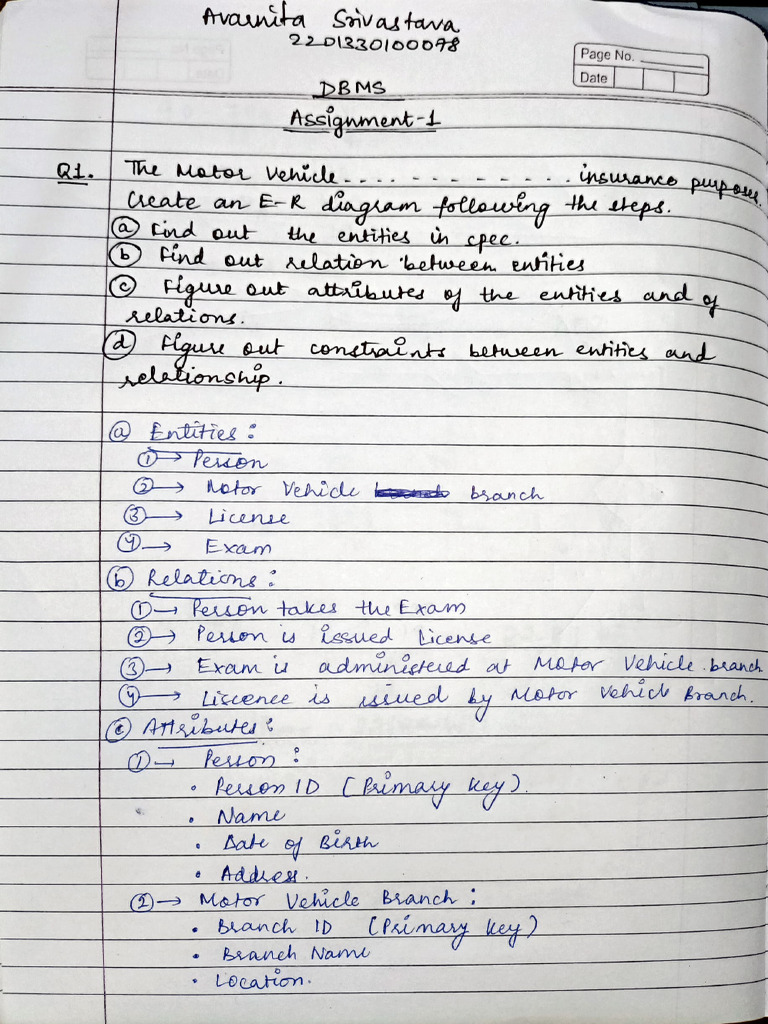 Avarnita Srivastava
2201330100098
Page No.
Date
DBMS
Assignment-1
Q1. The Motor Vehicle . . . . . . . . . . . . . insurance purposes.
Create an E-R diagram following the steps.
(a) Find out the entities in spec.
(b) Find out relation between entities
(c) Figure out attributes of the entities and of
relations.
(d) Figure out constraints between entities and
relationship.
(a) Entities :
(1) → Person
(2) → Motor Vehicle branch
(3) → License
(4) → Exam
(b) Relations :
(1) → Person takes the Exam
(2) → Person is issued License
(3) → Exam is administered at Motor Vehicle branch
(4) → Liscence is issued by Motor Vehicle Branch.
(c) Attributes :
(1) → Person :
• Person ID (Primary key).
• Name
• Date of Birth
• Address.
(2) → Motor Vehicle Branch :
• Branch ID (Primary key)
• Branch Name
• Location.